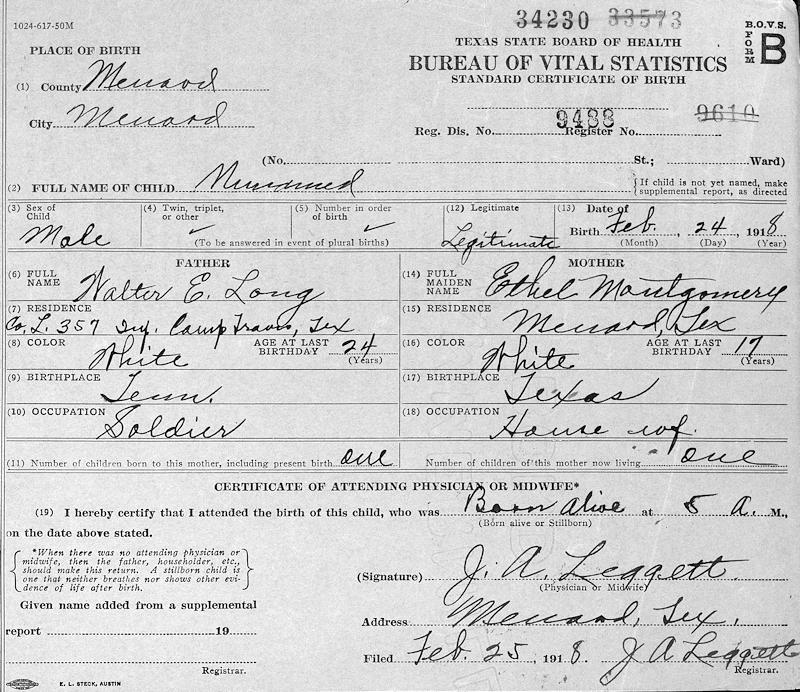 34230 33573
1024-617-50M
B.O.V.S.
FORM B
TEXAS STATE BOARD OF HEALTH
BUREAU OF VITAL STATISTICS
STANDARD CERTIFICATE OF BIRTH
PLACE OF BIRTH
(1) County Menard
City Menard
9488 9610
Reg. Dis. No. Register No.
(No. St.; Ward)
(2) FULL NAME OF CHILD Nunamed
{If child is not yet named, make supplemental report, as directed
(3) Sex of Child Male
(4) Twin, triplet, or other ✓
(5) Number in order of birth ✓
(To be answered in event of plural births)
(12) Legitimate Legitimate
(13) Date of Birth Feb. , 24 , 1918
(Month) (Day) (Year)
FATHER
(6) FULL NAME Walter E. Long
(7) RESIDENCE
Co. L. 357 Inf. Camp Travis, Tex
(8) COLOR White AGE AT LAST BIRTHDAY 24
(Years)
(9) BIRTHPLACE Tenn.
(10) OCCUPATION Soldier
MOTHER
(14) FULL MAIDEN NAME Ethel Montgomery
(15) RESIDENCE Menard, Tex
(16) COLOR White AGE AT LAST BIRTHDAY 17
(Years)
(17) BIRTHPLACE Texas
(18) OCCUPATION House wf.
(11) Number of children born to this mother, including present birth one
Number of children of this mother now living one
CERTIFICATE OF ATTENDING PHYSICIAN OR MIDWIFE*
(19) I hereby certify that I attended the birth of this child, who was Born alive at 5 A. M.,
(Born alive or Stillborn)
on the date above stated.
{*When there was no attending physician or midwife, then the father, householder, etc., should make this return. A stillborn child is one that neither breathes nor shows other evidence of life after birth.}
(Signature) J. A. Leggett
(Physician or Midwife)
Given name added from a supplemental
report 19
Registrar.
Address Menard, Tex.
Filed Feb. 25, 1918 J A Leggett
Registrar.
E. L. STECK, AUSTIN